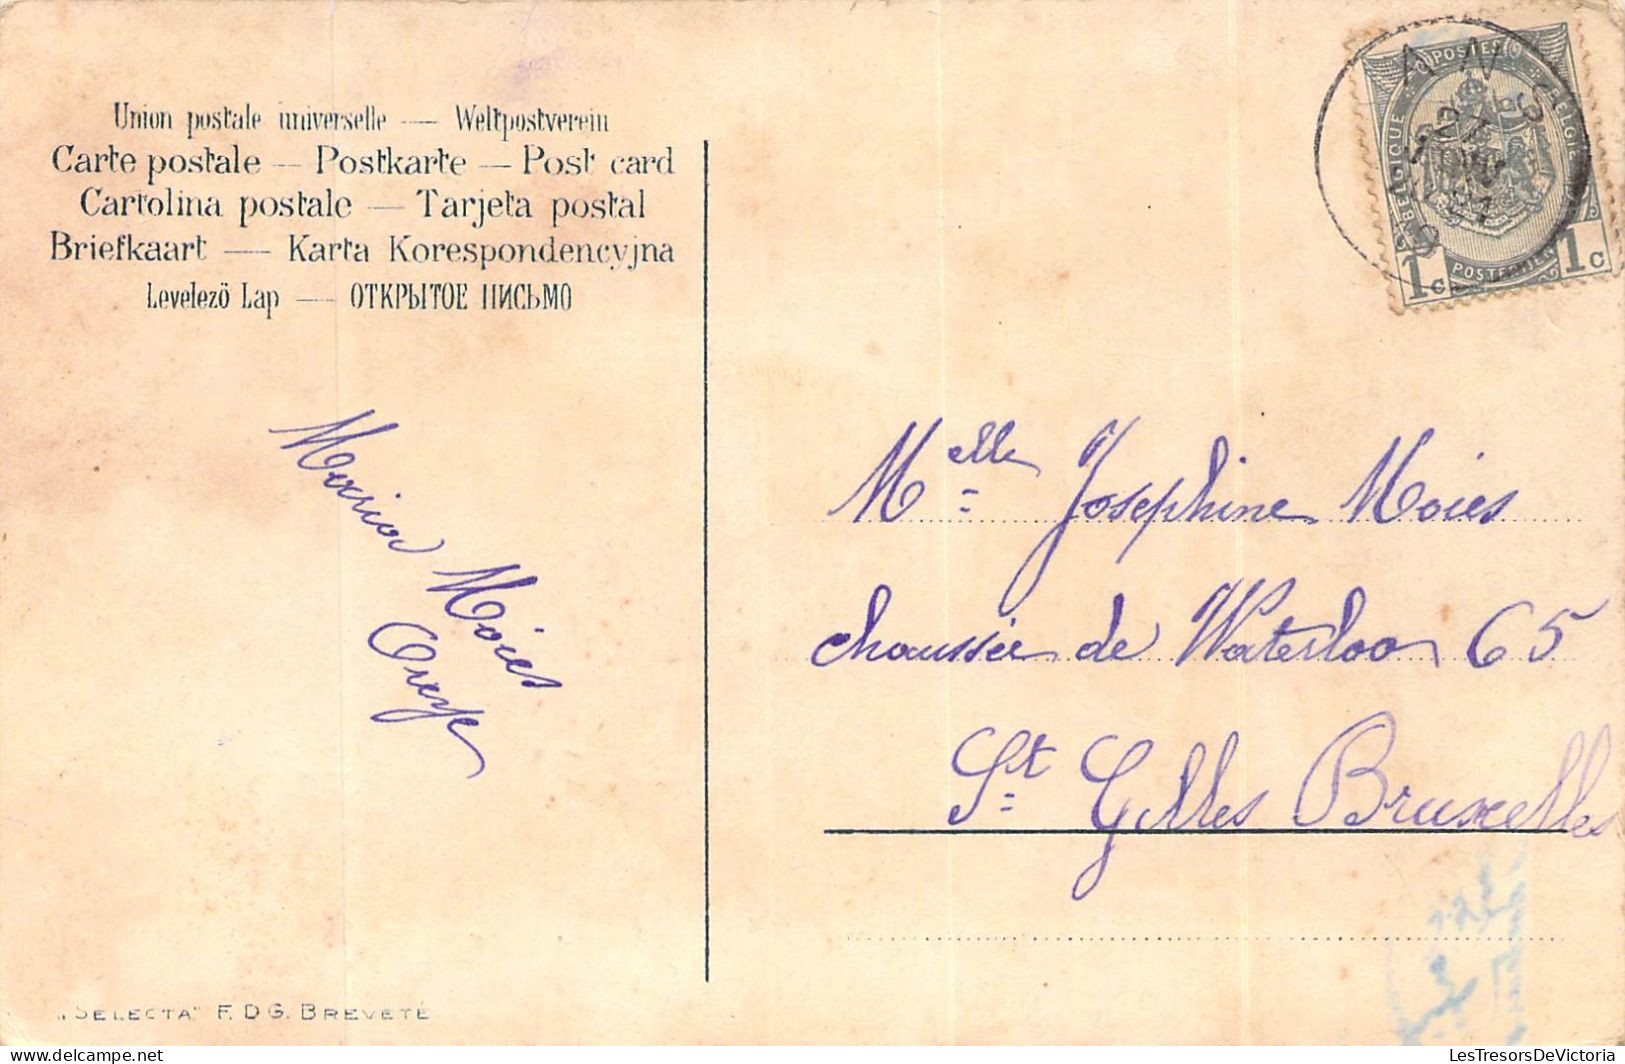 Union postale universelle — Weltpostverein
Carte postale — Postkarte — Post card
Cartolina postale — Tarjeta postal
Briefkaart — Karta Korespondencyjna
Levelezö Lap — ОТКРЫТОЕ ПИСЬМО
POSTES
BELGIQUE
BELGIE
POSTERIJEN
1c 1c
ANS
Maria Moies
Oreye
Melle Josephine Moies
chaussée de Waterloo 65
St Gilles Bruxelles
„SELECTA" F.D.G. BREVETÉ
LesTresorsDeVictoria
delcampe.net